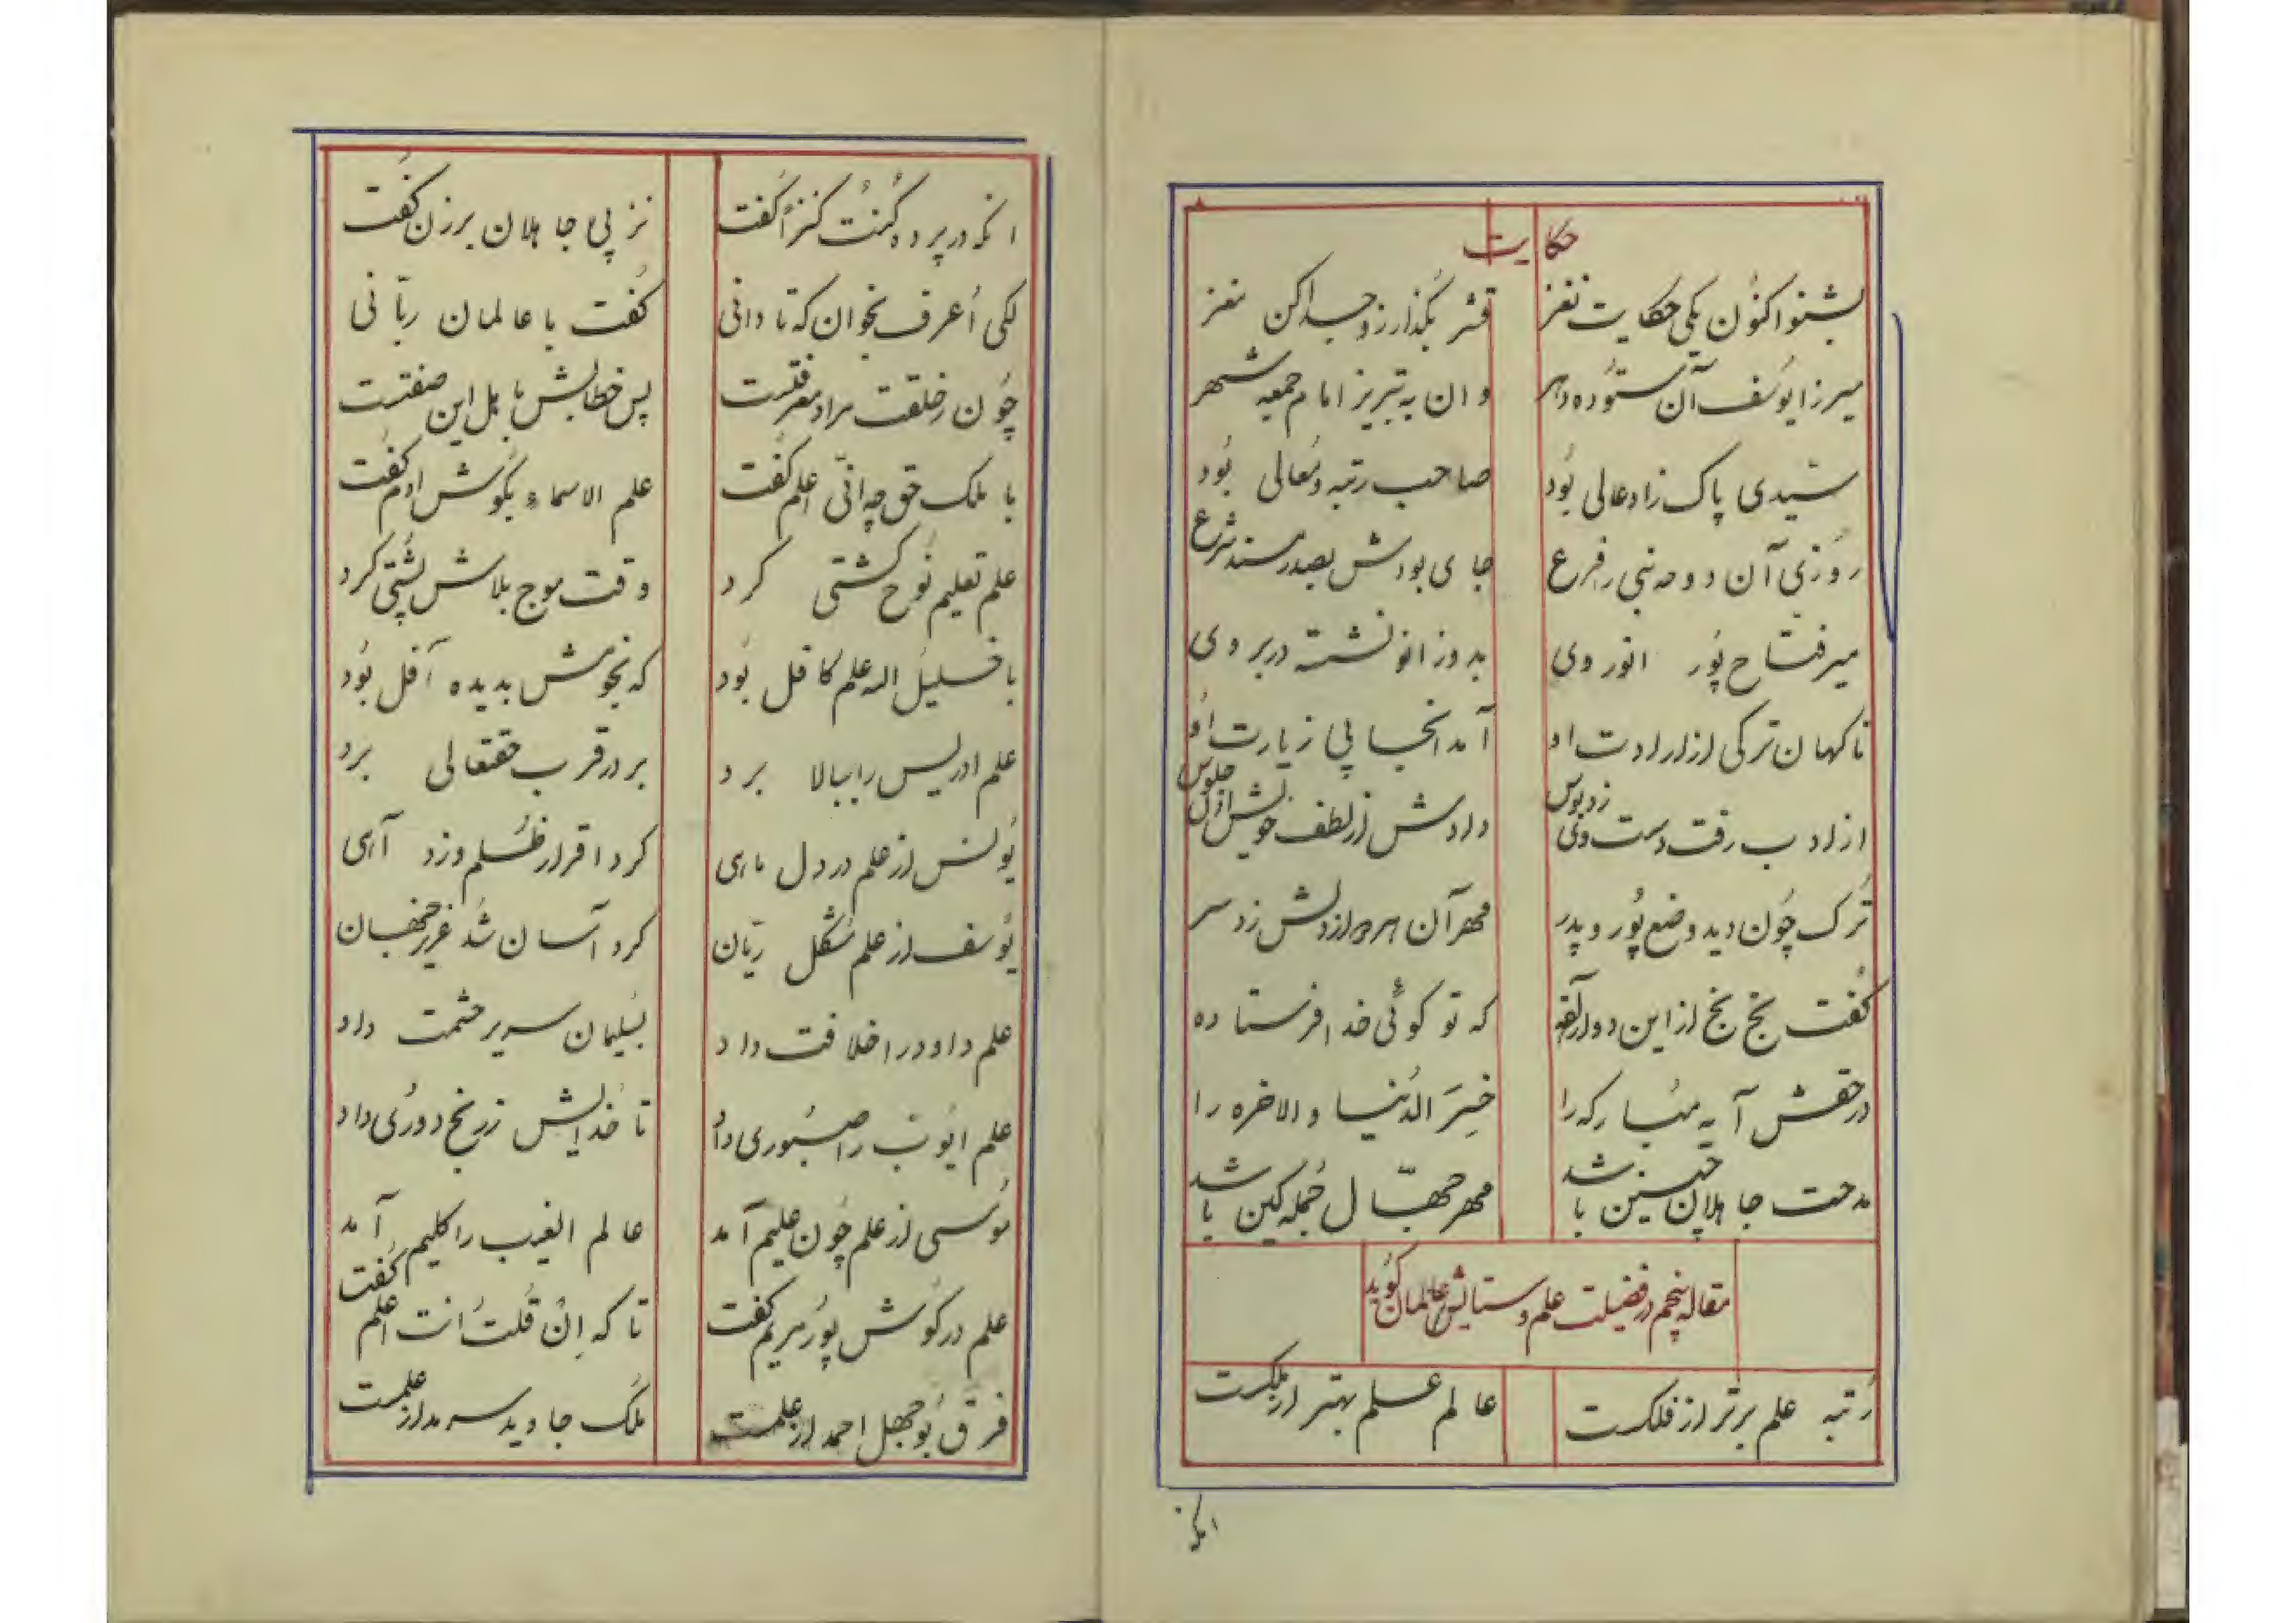 حکایت
بشنو اکنون یکی حکایت نغز قشر بگذار زو جدا کن مغز
میرزا یوسف آن ستوده دهر و ان به تبریز امام جمعه شهر
سیدی پاک زاد عالی بُود صاحب رتبه و معالی بُود
روزی آن دوحه نبی را فرع جای بودش بصدر مسند شرع
میر فتاح پُور انور وی بدو زانو نشسته در بر وی
ناکهان ترکی از ارادت او آمد آنجا پی زیارت اُو
از ادب رفت دست وی زد بوس دادش از لطف خویش اذن جلوس
تُرک چُون دید وضع پُور و پدر مهر آن هر دو از دلش زد سر
کفت بَخ بَخ از این دو آقازاده که تو کوئی خدا فرستاده
در حقش آیه مبارکه را خَسِرَ الدُنیا والاخره را
مدحت جاهلان چنین باشد مهر جهّال جُمله کین باشد
مقاله پنجم در فضیلت علم و ستایش عالمان کوید
رُتبه علم برتر از فلکست عالم علم بهتر از ملکست
انکه
انکه در پرده کُنتُ کنزاً کُفت نز پی جاهلان برزن کُفت
لکی اُعرف بخوان که تا دانی کفت با عالمان ربّانی
چُون ز خلقت مراد معرفتست پس خطابش با هل این صفتست
با ملک حق چه انّی اعلم کُفت علم الاسماء بکوش ادم کفت
علم تعلیم نُوح کشتی کرد وقت موج بلاش پُشتی کرد
با خلیلُ اله علم کا قل بُود که نجومش بدیده آفل بُود
علم ادریس را ببالا برد بر در قرب حقتعالی برد
یُونس از علم در دل ماری کرد اقرار ظُلم و زد آری
یُوسف از علم مُشکل ریّان کرد آسان شد عزیز جهان
علم داود را خلافت داد بسلیمان سریر حشمت داد
علم ایُوب را صبُوری داد تا خدایش ز رنج دورُی داد
مُوسی از علم چُون علیم آمد عالم الغیب را کلیم آمد
علم در کُوش پُور مریم کفت تا که اِن قُلتُ انت اعلم کُفت
فرق بُوجهل احمد از علمست مُلک جاوید سرمد از علمست